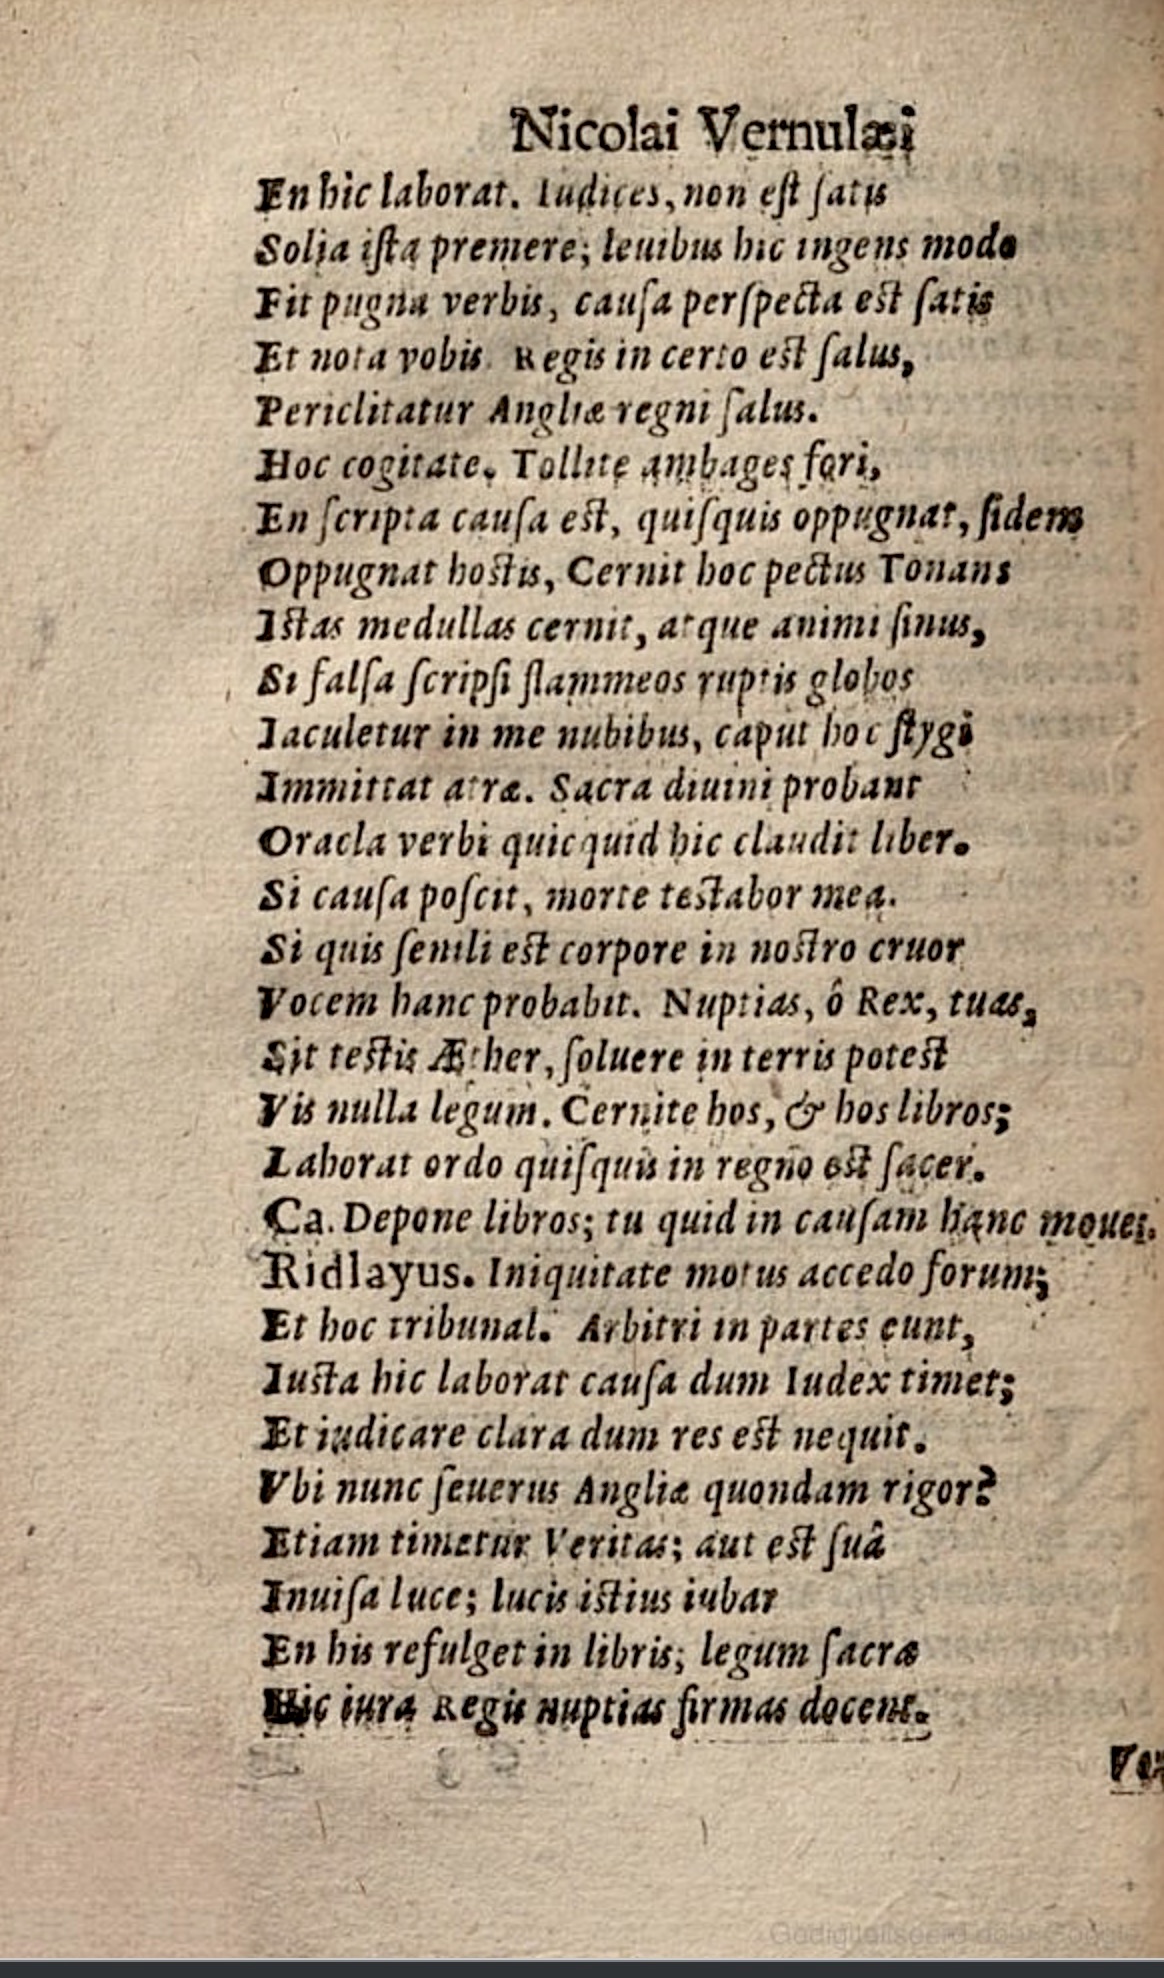 Nicolai Vernulæi
En hic laborat. Iudices, non eſt ſatis
Solia iſta premere; leuibus hic ingens modo
Fit pugna verbis, cauſa perſpecta eſt ſatis
Et nota vobis. Regis in certo eſt ſalus,
Periclitatur Angliæ regni ſalus.
Hoc cogitate. Tollite ambages fori,
En ſcripta cauſa eſt, quiſquis oppugnat, fidem
Oppugnat hoſtis, Cernit hoc pectus Tonans
Iſtas medullas cernit, atque animi ſinus,
Si falſa ſcripſi flammeos ruptis globos
Iaculetur in me nubibus, caput hoc ſtygi
Immittat atræ. Sacra diuini probant
Oracla verbi quicquid hic claudit liber.
Si cauſa poſcit, morte teſtabor mea.
Si quis ſenili eſt corpore in noſtro cruor
Vocem hanc probabit. Nuptias, ô Rex, tuas,
Sit teſtis Æther, ſoluere in terris poteſt
Vis nulla legum. Cernite hos, & hos libros;
Laborat ordo quiſquis in regno eſt ſacer.
Ca. Depone libros; tu quid in cauſam hanc moues.
Ridlayus. Iniquitate motus accedo forum;
Et hoc tribunal. Arbitri in partes eunt,
Iuſta hic laborat cauſa dum Iudex timet;
Et iudicare clara dum res eſt nequit.
Vbi nunc ſeuerus Angliæ quondam rigor?
Etiam timetur Veritas; aut eſt ſuâ
Inuiſa luce; lucis iſtius iubar
En his refulget in libris; legum ſacræ
Hic iura Regis nuptias firmas docent.
Gedigitaliseerd door Google